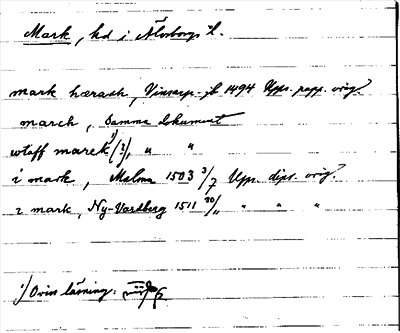 Mark, hd i Älvsborgs l.
mark hæradh, Vinsarp 1494 Upps. papp. orig.
march, Samma dokument
wtaff marek 1) (?), " "
i mark, Malma 1503 3/7 Upps. dipl. orig.
i mark, Ny-Vardberg 1511 30/11 " " "
1) Oviss läsning: